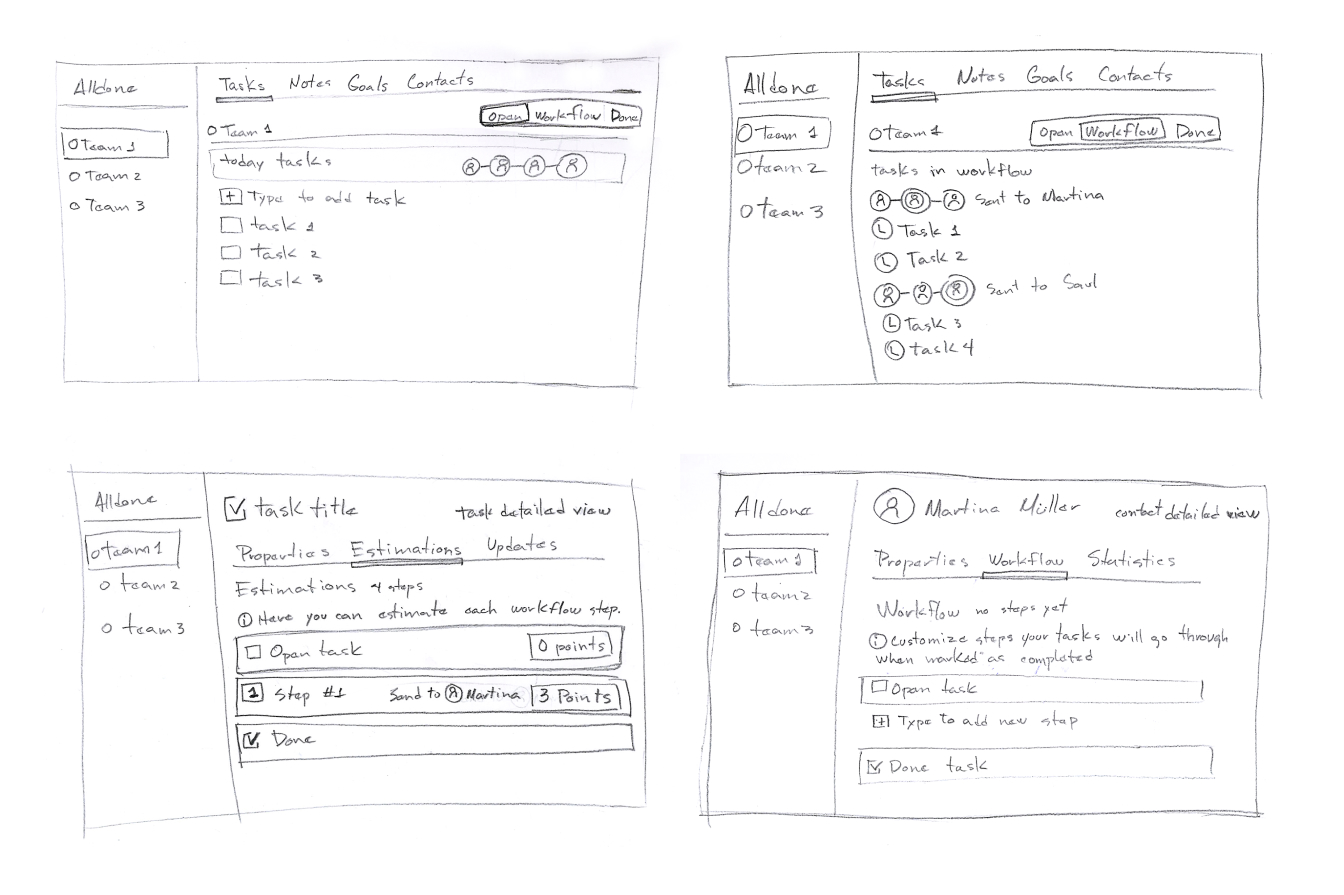 Alldone
Tasks Notes Goals Contacts
Open Workflow Done
O Team 1
O Team 1
O Team 2
O Team 3
today tasks
+ Type to add task
task 1
task 2
task 3
Alldone
Tasks Notes Goals Contacts
O Team 1
O team 2
O team 3
O team 1
Open Workflow Done
tasks in workflow
Sent to Martina
L Task 1
L Task 2
Sent to Saul
L Task 3
L task 4
Alldone
O team 1
O team 2
O team 3
task title
task detailed view
Properties Estimations Updates
Estimations 4 steps
i Here you can estimate each workflow step.
Open task 0 points
1 Step #1 Send to Martina 3 Points
Done
Alldone
O team 1
O team 2
O team 3
Martina Müller
contact detailed view
Properties Workflow Statistics
Workflow no steps yet
i Customize steps your tasks will go through
when marked as completed
Open task
+ Type to add new step
Done task